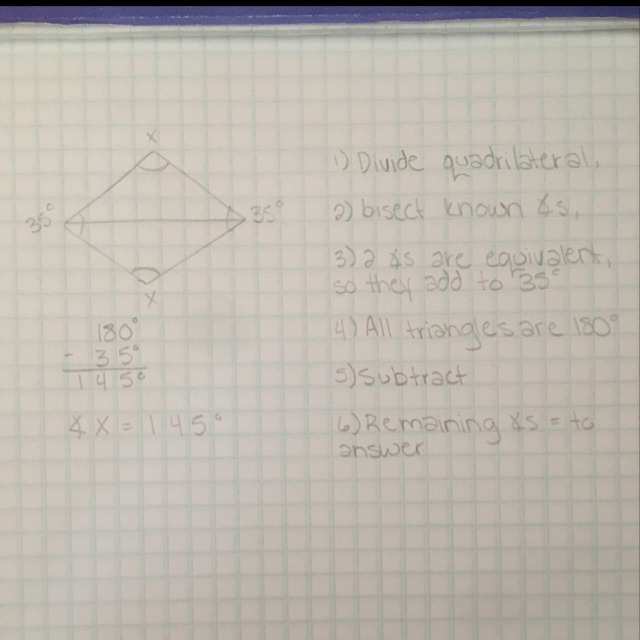 x
35°
35°
x
180°
- 35°
145°
∡ X = 145°
1) Divide quadrilateral,
2) bisect known ∡s,
3) 2 ∡s are equivalent,
so they add to 35°
4) All triangles are 180°
5) Subtract
6) Remaining ∡s = to
answer